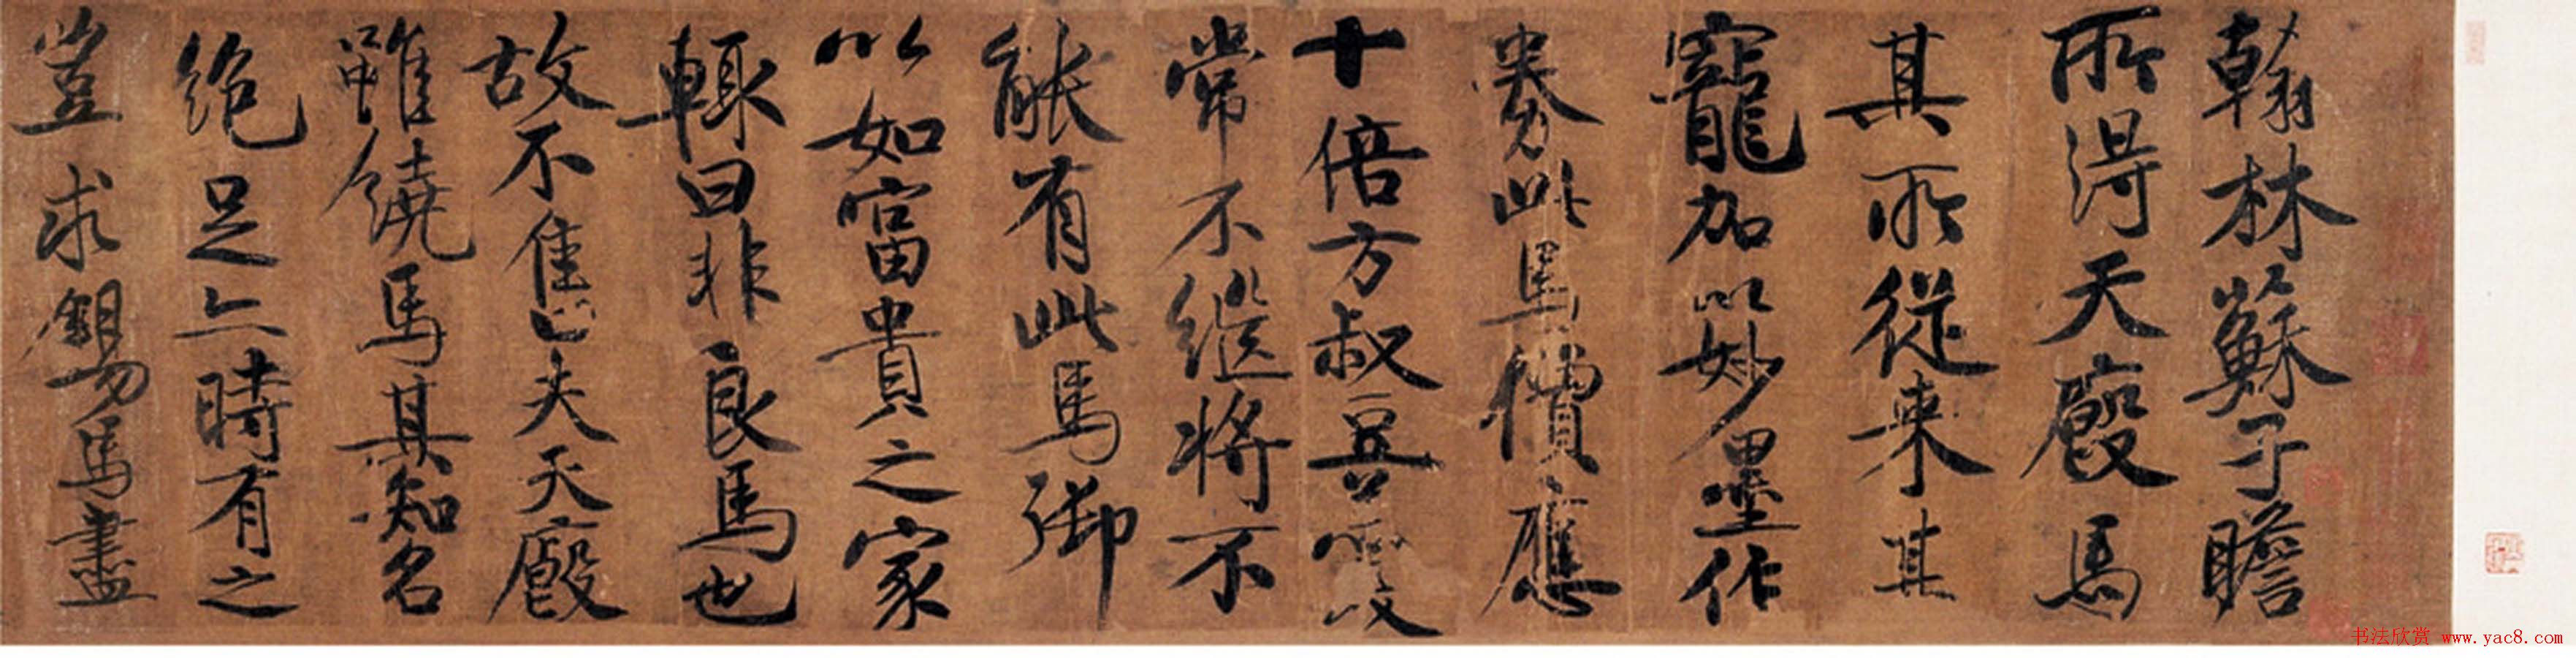 翰林蘇子瞻
所得天廄馬
其所從來甚
寵加以妙墨作
券此馬價應
十倍方叔豆羹
常不繼將不
能有此馬御
以如富貴之家
輒曰非良馬也
故不售夫天廄
雖饒馬其知名
絕足亦時有之
豈求錫馬盡
书法欣赏 www.yac8.com